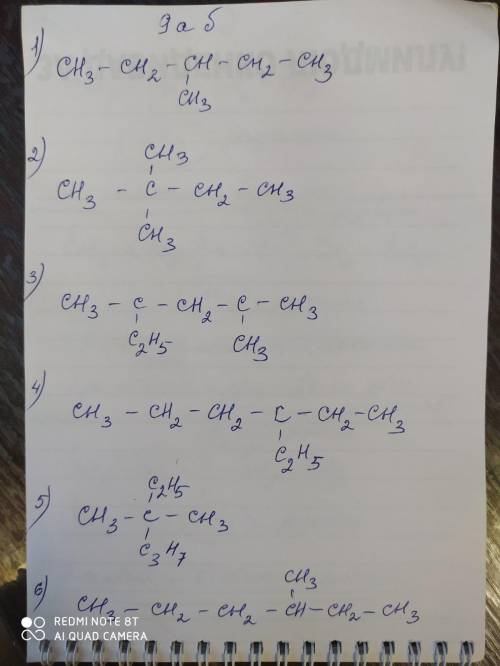 9 а б
1) CH3 - CH2 - CH - CH2 - CH3
CH3
2) CH3
CH3 - C - CH2 - CH3
CH3
3) CH3 - C - CH2 - C - CH3
C2H5 CH3
4) CH3 - CH2 - CH2 - C - CH2 - CH3
C2H5
5) C2H5
CH3 - C - CH3
C3H7
6) CH3
CH3 - CH2 - CH2 - CH - CH2 - CH3
REDMI NOTE 8T
AI QUAD CAMERA